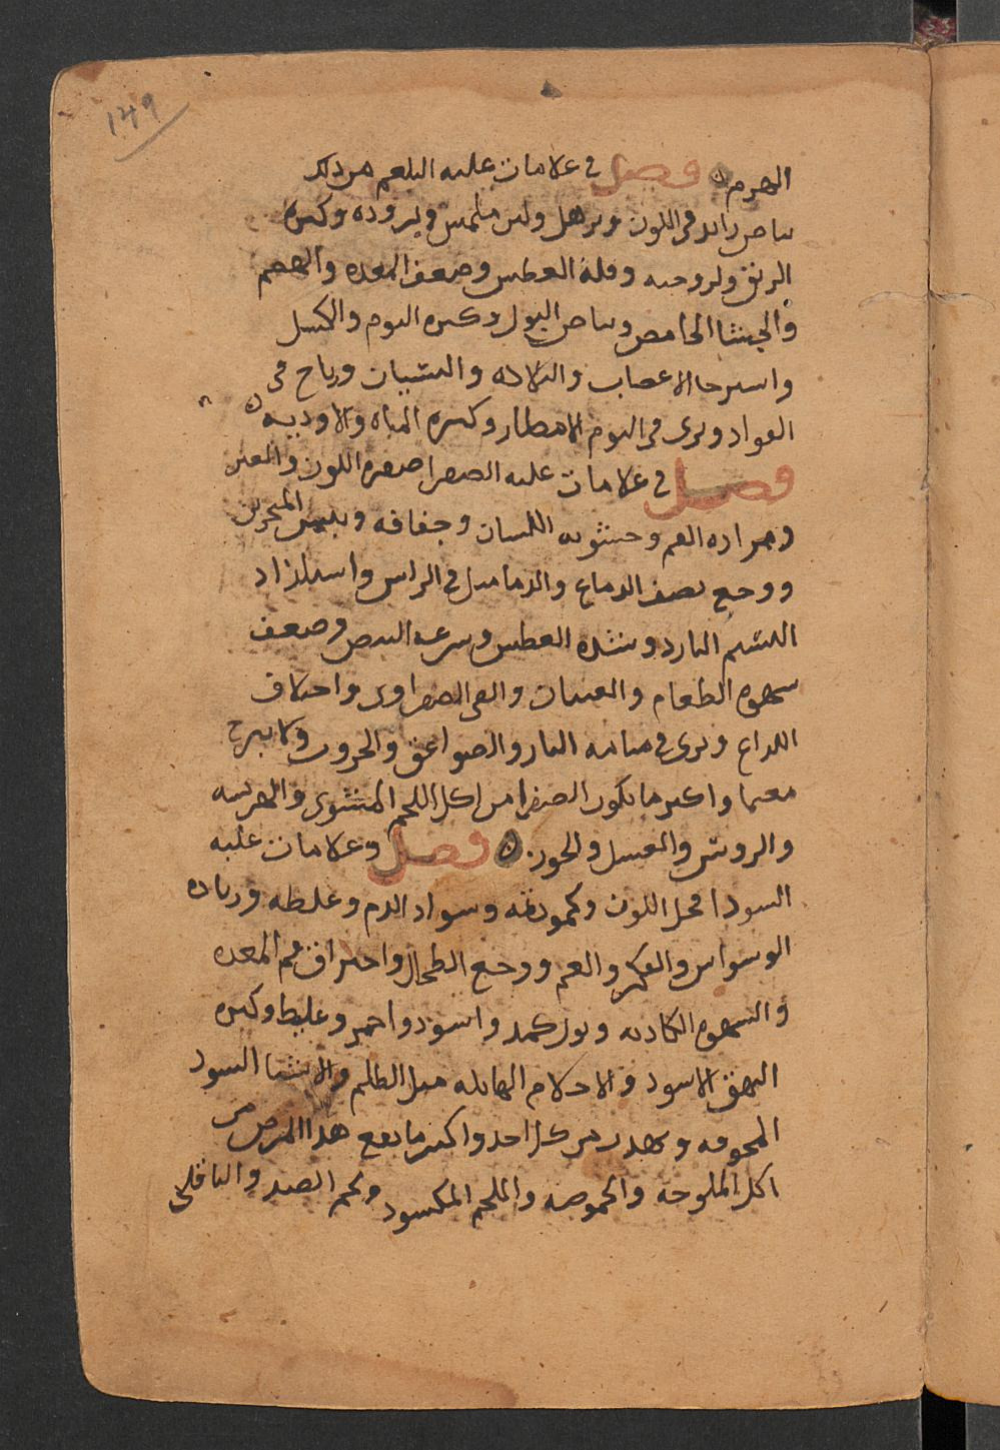 ١٤٩
الهرم فصل في علامات غلبه البلغم من ذلك
بياض زايد في اللون وترهل ولين ملمس وبروده وكثره
الريق ولزوجته وقلة العطش وضعف المعده والهضم
والجشا الحامض وبياض البول وكثره النوم والكسل
واسترخا الاعصاب والبلاده والنسيان ورياح في
الفواد ويرى في النوم الامطار وكثره المياه والاوديه
فصل في علامات غلبه الصفرا صفره اللون والعين
ومراره الفم وخشونه اللسان وجفافه ويبس المنخرين
ووجع نصف الدماغ والدماميل في الراس واستلذاذ
النسيم البارد وشده العطش وسرعه النبض وضعف
شهوه الطعام والغثيان والقي الصفراوي واختلاف
اللداع ويرى في منامه النار والصواعق والحروب ولا يبرح
مغتما واكثر ما تكون الصفرا من اكل اللحم المشوي والهريسه
والروس والعسل والجوز فصل وعلامات غلبه
السودا قحل اللون وكمودته وسواد الدم وغلظه وزياده
الوسواس والفكر والغم ووجع الطحال واحتراق فم المعده
والشهوه الكاذبه وبول كمد واسود واحمر وغليظ وكثره
البهق الاسود والاحلام الهايله مثل الظلم والاشيا السود
المخوفه ويهدر من كل احد واكثر ما يقع هذا المرض من
اكل الملوحه والحموضه واللحم المكسود ولحم الصيد والباقلى